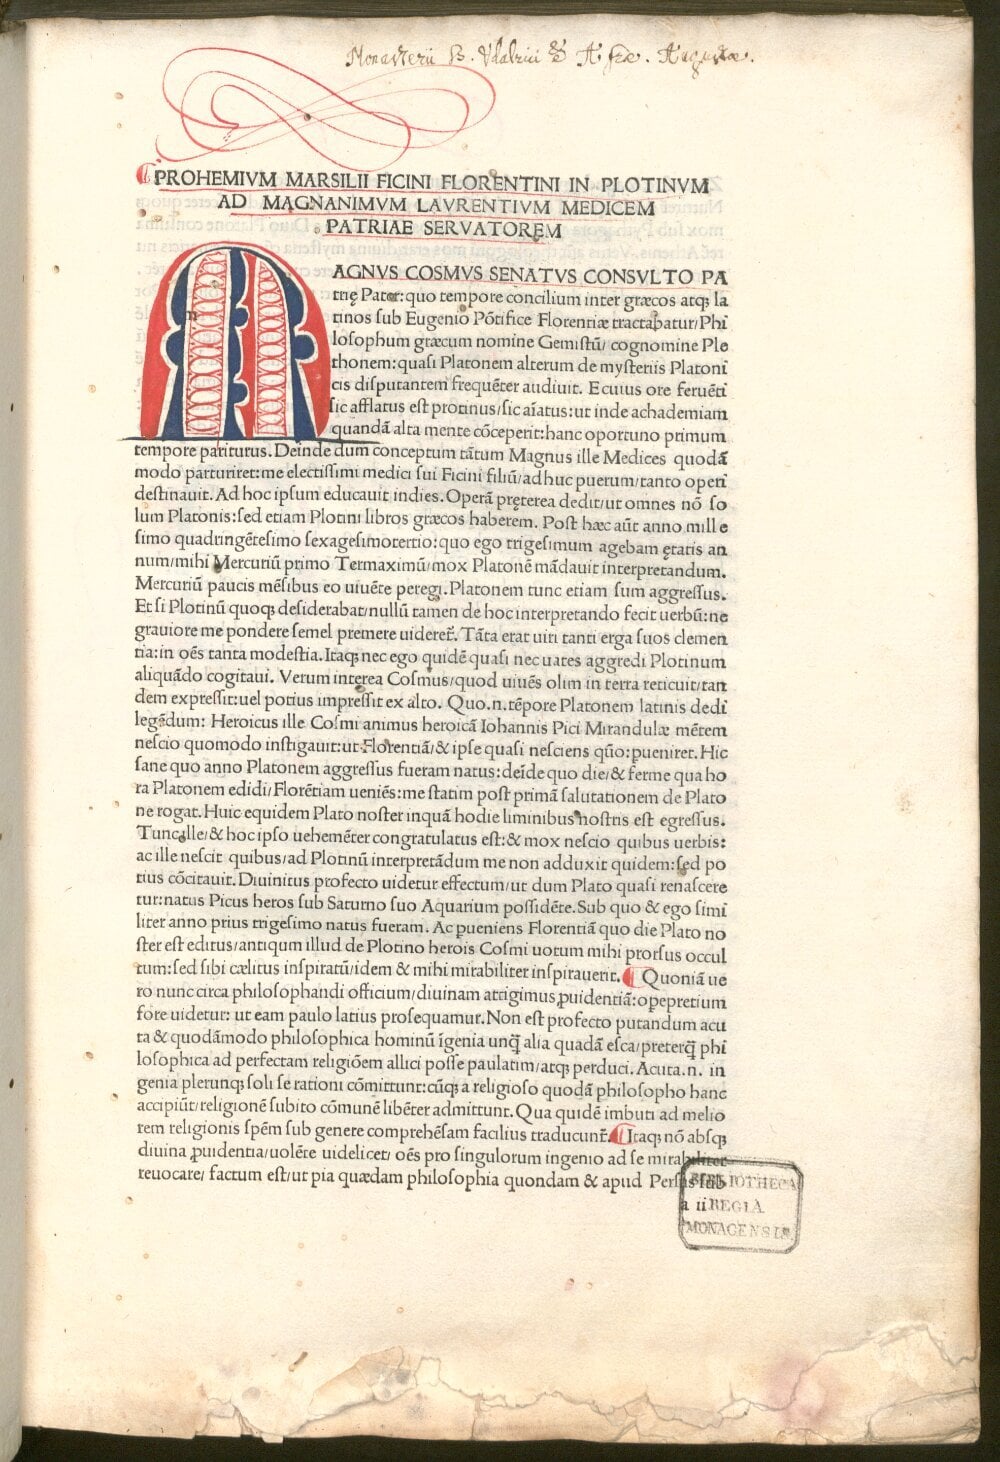 Monasterii B. Vdalrici & Afræ. Augustæ.
PROHEMIVM MARSILII FICINI FLORENTINI IN PLOTINVM
AD MAGNANIMVM LAVRENTIVM MEDICEM
PATRIAE SERVATOREM
MAGNVS COSMVS SENATVS CONSVLTO PA
trię Pater: quo tempore concilium inter græcos atqꝫ la
tinos ſub Eugenio Põtifice Florentiæ tractabatur/Phi
loſophum græcum nomine Gemiſtũ/ cognomine Ple
thonem: quaſi Platonem alterum de myſteriis Platoni
cis diſputantem frequẽter audiuit. E cuius ore feruẽti
ſic afflatus eſt protinus/ſic aĩatus: ut inde achademiam
quandã alta mente cõceperit: hanc oportuno primum
tempore pariturus. Deinde dum conceptum tãtum Magnus ille Medices quodã
modo parturiret: me electiſſimi medici ſui Ficini filiũ/adhuc puerum/tanto operi
deſtinauit. Ad hoc ipſum educauit indies. Operã pręterea dedit/ut omnes nõ ſo
lum Platonis: ſed etiam Plotini libros græcos haberem. Poſt hæc aũt anno mille
ſimo quadringẽteſimo ſexageſimotertio: quo ego trigeſimum agebam ętatis an
num/mihi Mercuriũ primo Termaximũ/mox Platonẽ mãdauit interpretandum.
Mercuriũ paucis mẽſibus eo uiuẽte peregi. Platonem tunc etiam ſum aggreſſus.
Et ſi Plotinũ quoqꝫ deſiderabat/nullũ tamen de hoc interpretando fecit uerbũ: ne
grauiore me pondere ſemel premere uideret̃. Tãta erat uiri tanti erga ſuos clemen
tia: in oẽs tanta modeſtia. Itaqꝫ nec ego quidẽ quaſi nec uates aggredi Plotinum
aliquãdo cogitaui. Verum interea Coſmus/quod uiuẽs olim in terra reticuit/tan
dem expreſſit: uel potius impreſſit ex alto. Quo.n.tẽpore Platonem latinis dedi
legẽdum: Heroicus ille Coſmi animus heroicã Iohannis Pici Mirandulæ mẽtem
neſcio quomodo inſtigauit: ut Florentiã/& ipſe quaſi neſciens qũo: ꝑueniret. Hic
ſane quo anno Platonem aggreſſus fueram natus: deĩde quo die/& ferme qua ho
ra Platonem edidi/Florẽtiam ueniẽs: me ſtatim poſt primã ſalutationem de Plato
ne rogat. Huic equidem Plato noſter inquã hodie liminibus noſtris eſt egreſſus.
Tunc ille/& hoc ipſo uehemẽter congratulatus eſt: & mox neſcio quibus uerbis:
ac ille neſcit quibus/ad Plotinũ interpretãdum me non adduxit quidem: ſed po
tius cõcitauit. Diuinitus profecto uidetur effectum/ut dum Plato quaſi renaſcere
tur: natus Picus heros ſub Saturno ſuo Aquarium poſſidẽte. Sub quo & ego ſimi
liter anno prius trigeſimo natus fueram. Ac ꝑueniens Florentiã quo die Plato no
ſter eſt editus/antiqum illud de Plotino herois Coſmi uotum mihi prorſus occul
tum: ſed ſibi cælitus inſpiratũ/idem & mihi mirabiliter inſpirauerit. Quoniã ue
ro nunc circa philoſophandi officium/diuinam attigimus ꝓuidentiã: operepretium
fore uidetur: ut eam paulo latius proſequamur. Non eſt profecto putandum acu
ta & quodãmodo philoſophica hominũ ĩgenia unq̃ alia quadã eſca/preterq̃ phi
loſophica ad perfectam religiõem allici poſſe paulatim/atqꝫ perduci. Acuta.n. in
genia plerunqꝫ ſoli ſe rationi cõmittunt: cũqꝫ a religioſo quodã philoſopho hanc
accipiũt/religionẽ ſubito cõmunẽ libẽter admittunt. Qua quidẽ imbuti ad melio
rem religionis ſpẽm ſub genere comprehẽſam facilius traducunt̃. Itaqꝫ nõ abſqꝫ
diuina ꝓuidentia/uolẽte uidelicet/ oẽs pro ſingulorum ingenio ad ſe mirabiliter
reuocare/ factum eſt/ut pia quædam philoſophia quondam & apud Perſas ſub
a ii
BIBLIOTHECA
REGIA
MONACENSIS.